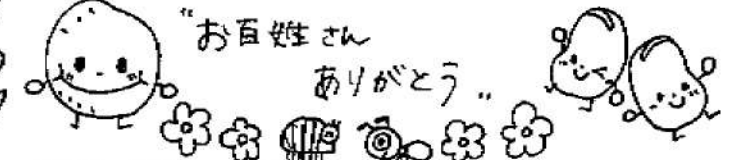 "お百姓さん
ありがとう"